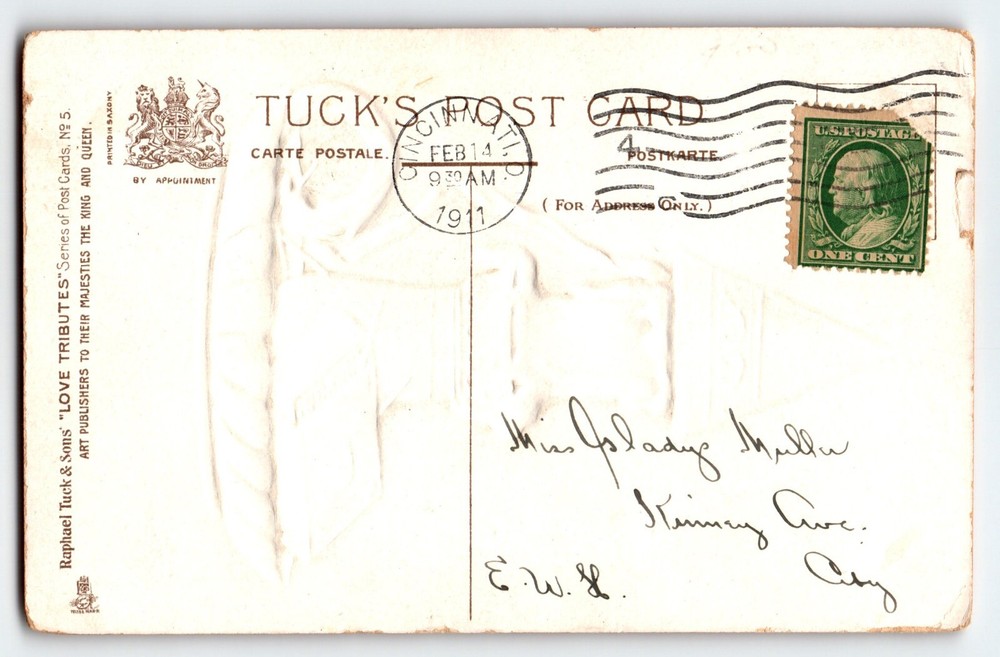 Raphael Tuck & Sons' "LOVE TRIBUTES" Series of Post Cards, Nº 5.
ART PUBLISHERS TO THEIR MAJESTIES THE KING AND QUEEN.
PRINTED IN SAXONY
BY APPOINTMENT
TUCK'S POST CARD
CARTE POSTALE.
POSTKARTE.
(FOR ADDRESS ONLY.)
CINCINNATI, O
FEB 14
9 30 AM
1911
4
U.S. POSTAGE
ONE CENT
Miss Gladys Muller
Kinney Ave.
E. W. H.
City